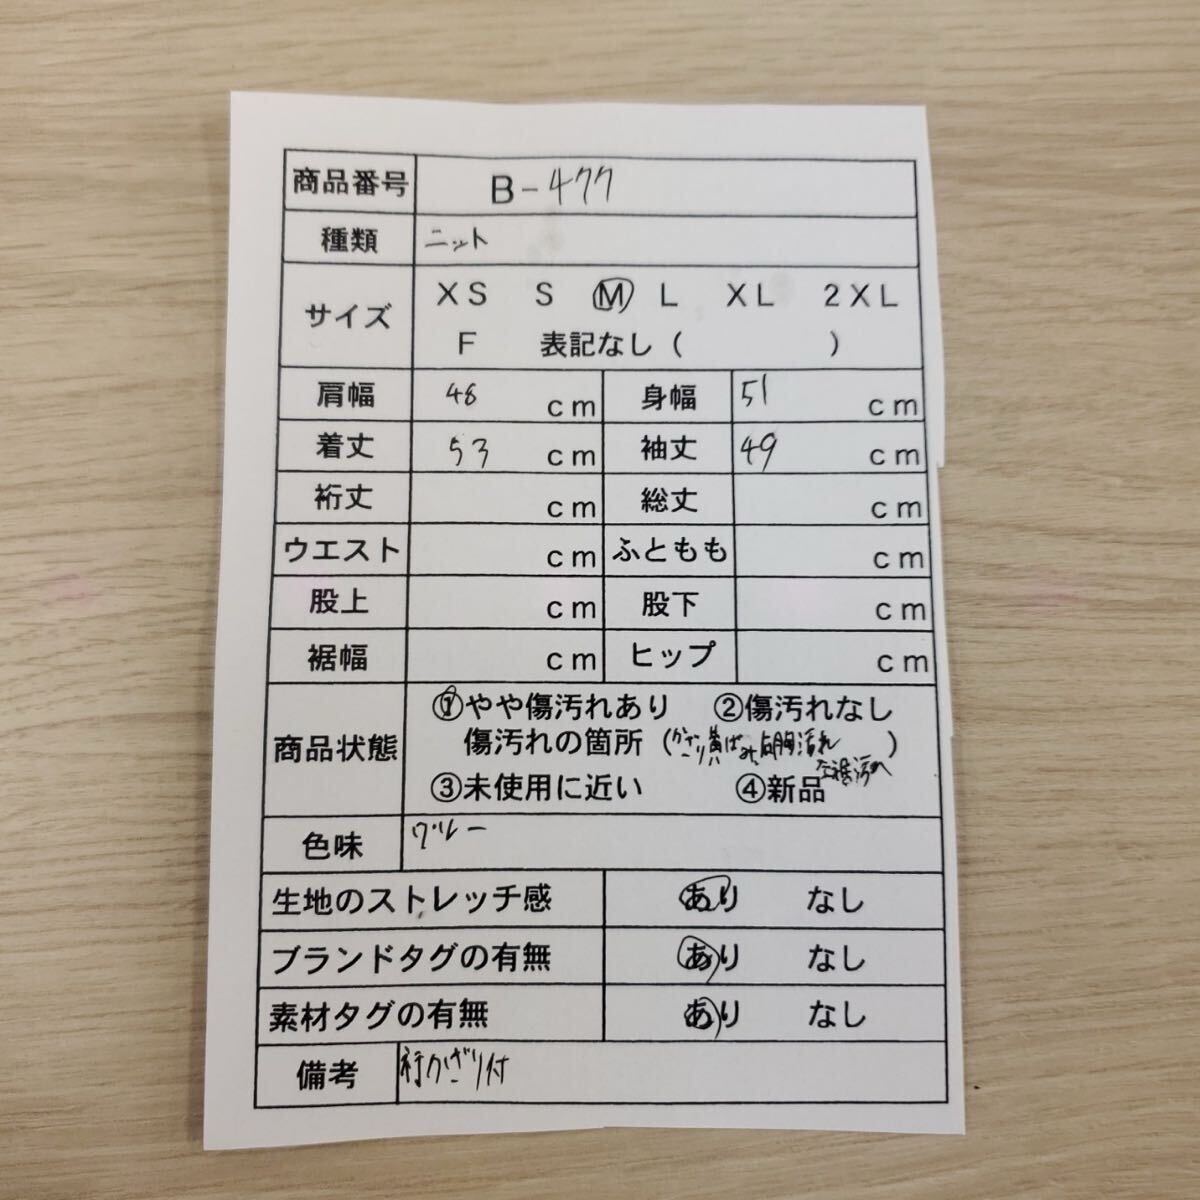 商品番号 B-477
種類 ニット
サイズ XS S M L XL 2XL
F 表記なし ( )
肩幅 48 cm 身幅 51 cm
着丈 53 cm 袖丈 49 cm
裄丈 cm 総丈 cm
ウエスト cm ふともも cm
股上 cm 股下 cm
裾幅 cm ヒップ cm
商品状態 ①やや傷汚れあり ②傷汚れなし
傷汚れの箇所 (かざり黄ばみ 汚れ )
③未使用に近い ④新品
色味 グレー
生地のストレッチ感 あり なし
ブランドタグの有無 あり なし
素材タグの有無 あり なし
備考 衿かざり付